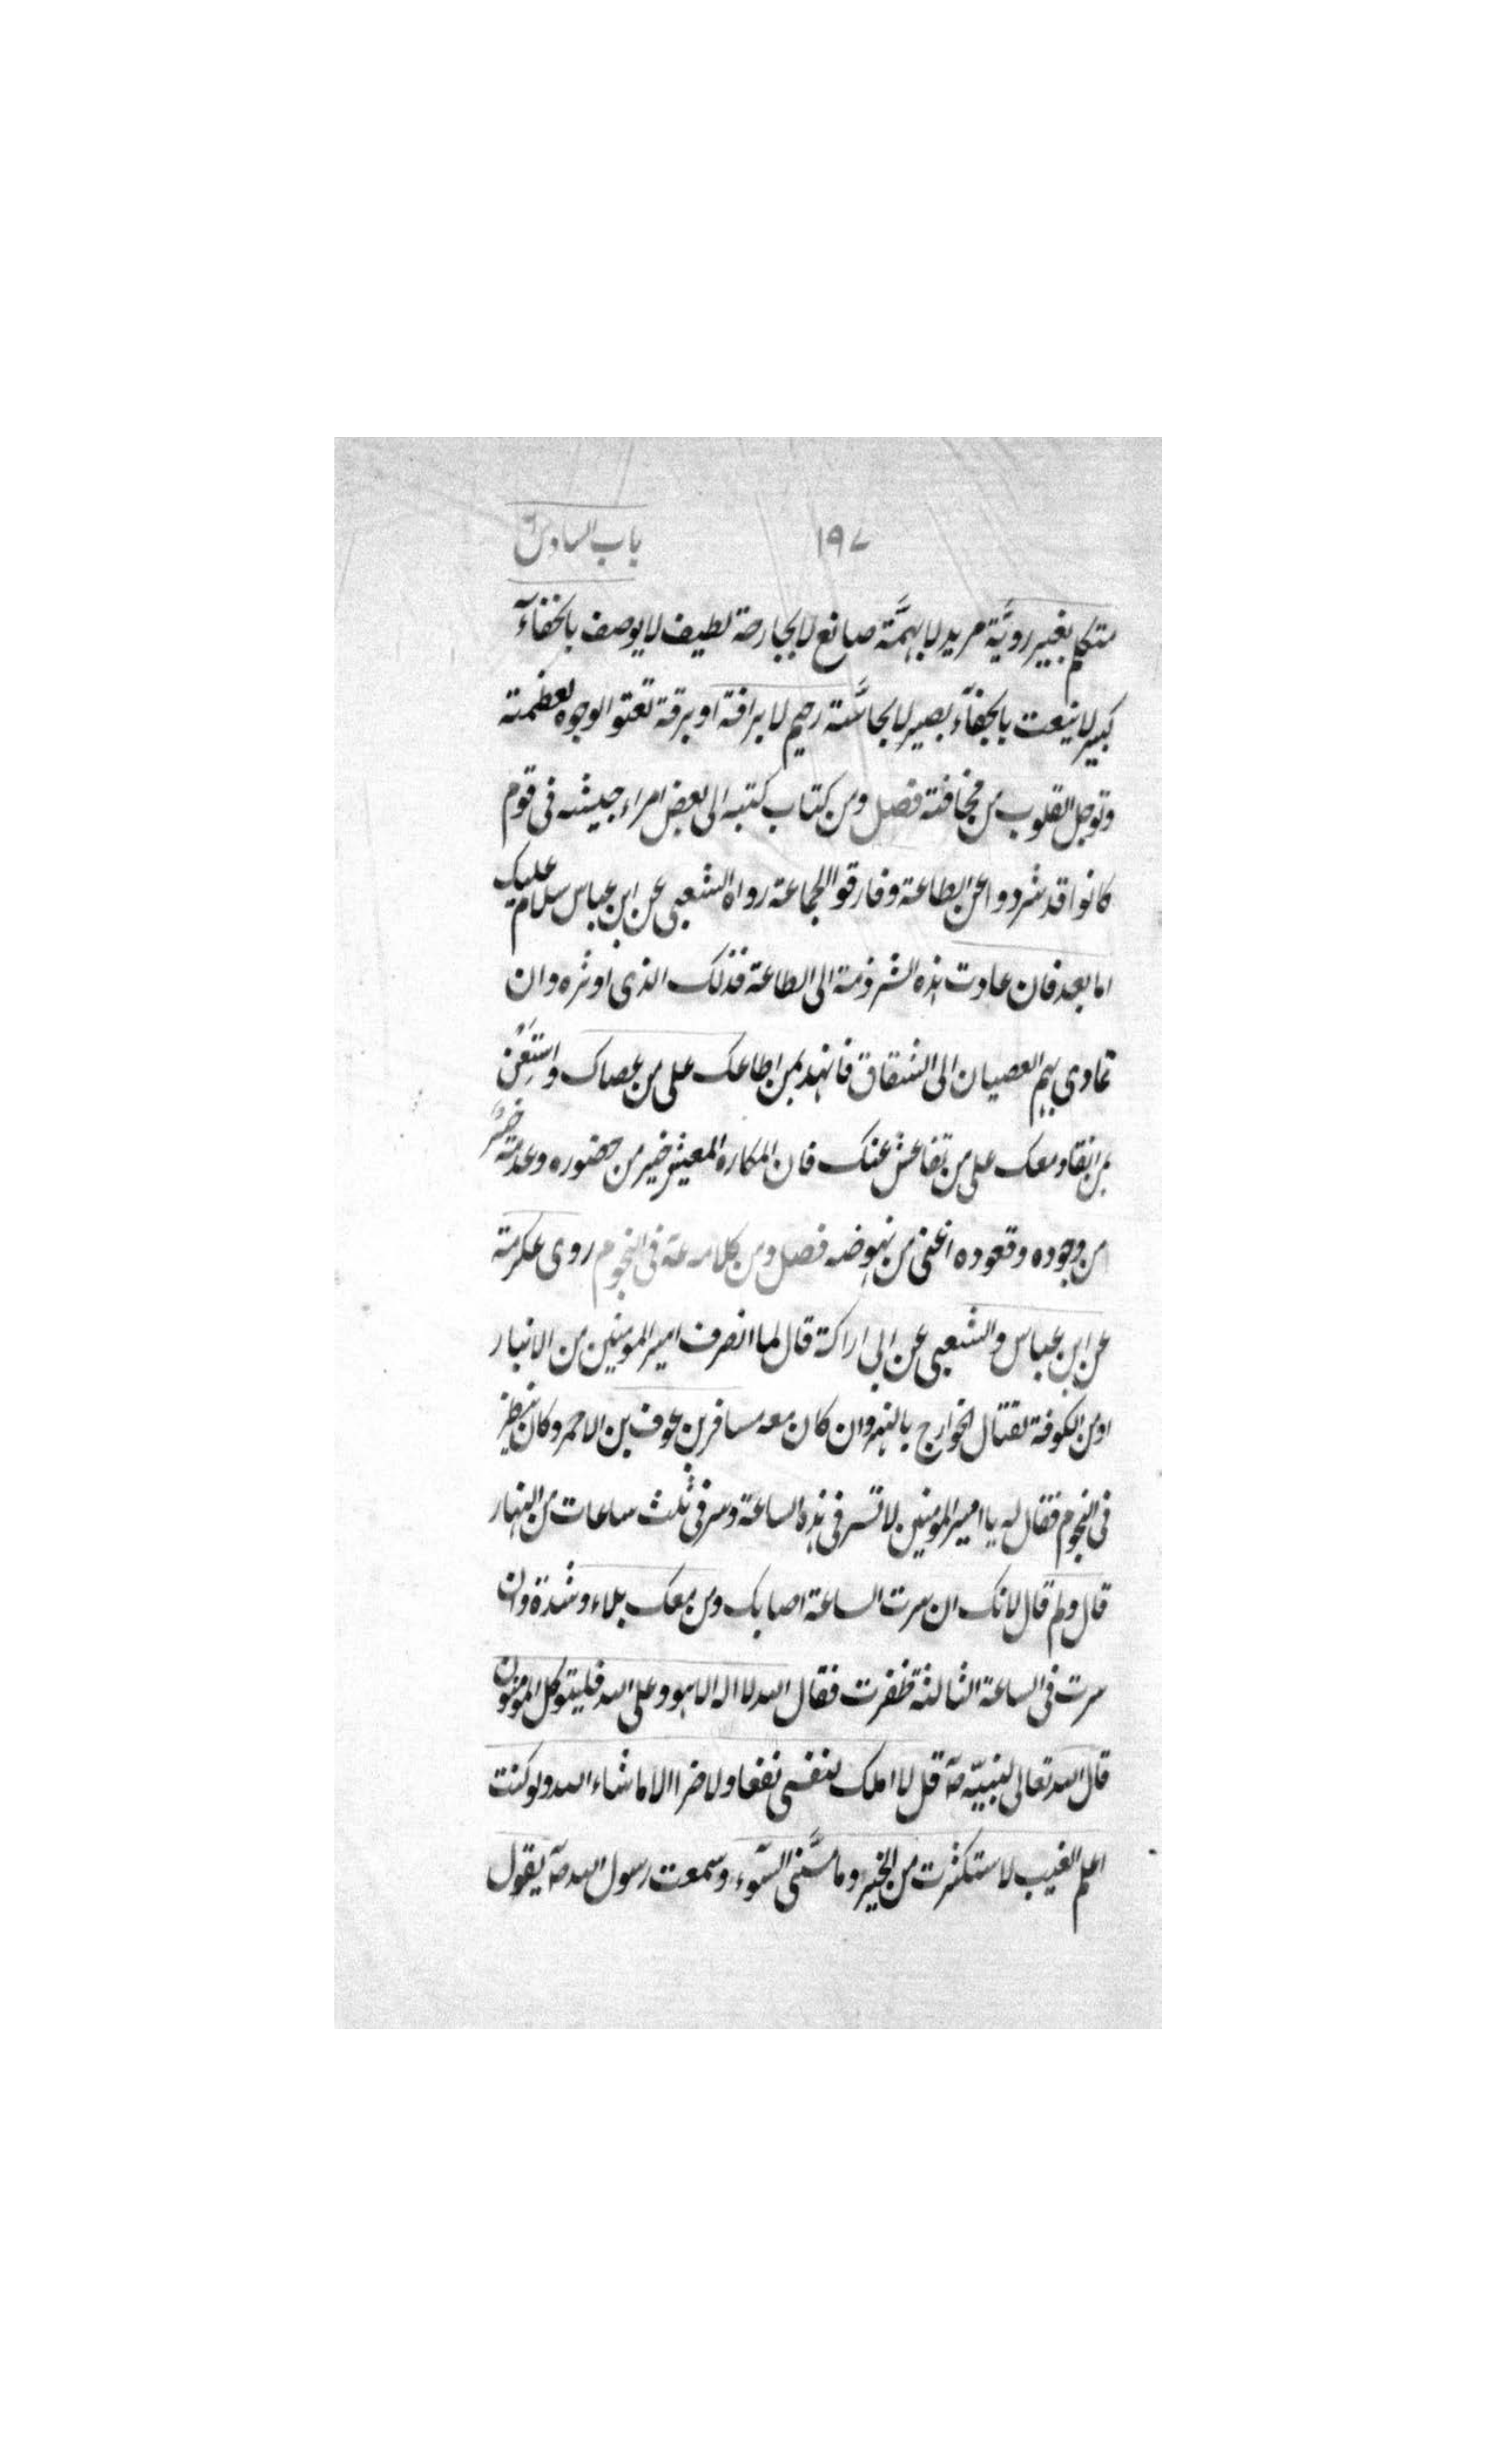 باب السادس ١٩٧
متكلم بغير رويَّة مريد لا بهمَّة صانع لا بجارحة لطيف لا يوصف بالخفآء
كبير لا ينعت بالجفآء بصير لا بحاسَّة رحيم لا برافة او برقة تعنو الوجوه لعظمته
وتوجل القلوب من مخافته فصل ومن كتاب كتبه الى بعض امراء جيشه فى قوم
كانوا قد شردوا عن الطاعة وفارقوا الجماعة رواه الشعبى عن ابن عباس سلام عليك
اما بعد فان عادت هذه الشرذمة الى الطاعة فذلك الذى اوثره وان
تمادى بهم العصيان الى الشقاق فانهد بمن اطاعك على من عصاك واستَعِن
بمن انقاد معك على من تقاعس عنك فان المكاره المعيش خير من حضوره وعدمه خير
من وجوده وقعوده اغنى من نهوضه فصل ومن كلامه عۤه فى النجوم روى عكرمة
عن ابن عباس والشعبى عن ابى اراكة قال لما انصرف امير المومنين من الانبار
او من الكوفة لقتال الخوارج بالنهروان كان معه مسافر بن عوف بن الاحمر وكان ينظر
فى النجوم فقال له يا امير المومنين لا تسر فى هذه الساعة وسر فى ثلث ساعات من النهار
قال ولم قال لانك ان سرت الساعة اصابك ومن معك بلاء وشدة وان
سرت فى الساعة الثالثة ظفرت فقال الله لا اله الا هو وعلى الله فليتوكل المومنون
قال الله تعالى لنبيّه صۤ قل لا املك لنفسى نفعا ولا ضرا الا ما شاء الله ولو كنت
اعلم الغيب لاستكثرت من الخير وما مسَّنى السّوۤء وسمعت رسول الله صۤ يقول